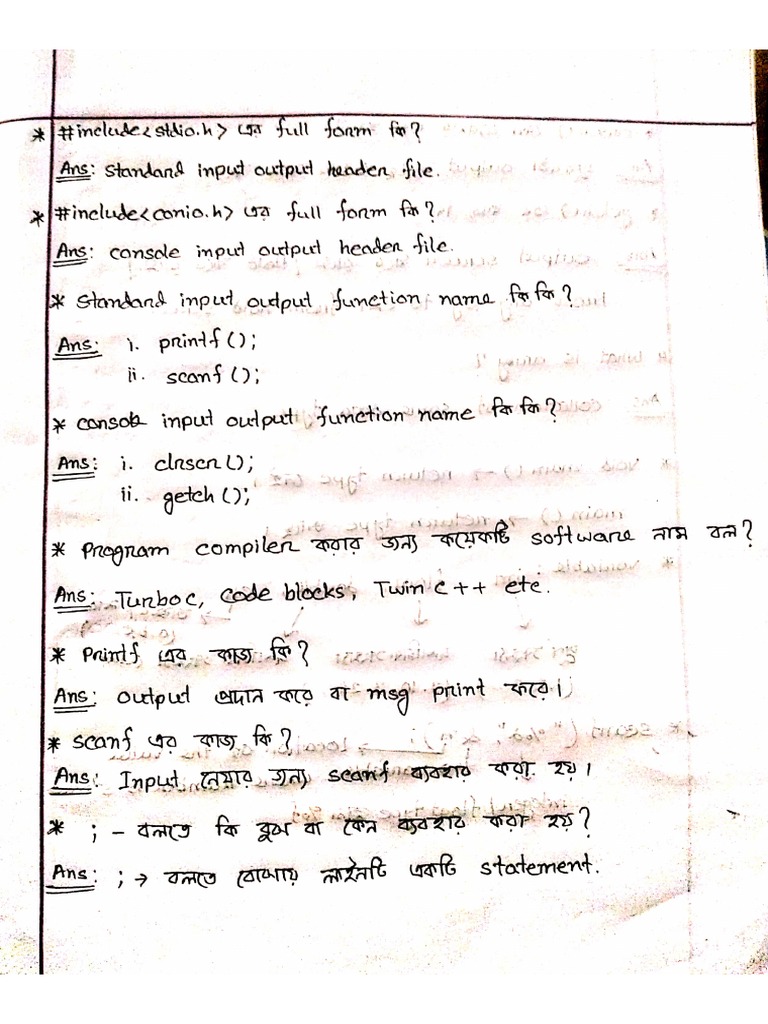 * #include<stdio.h> এর full form কি?
Ans: standard input output header file.
* #include<conio.h> এর full form কি?
Ans: console input output header file.
* standard input output function name কি কি?
Ans: i. printf();
ii. scanf();
* console input output function name কি কি?
Ans: i. clrscr();
ii. getch();
* Program compiler করার জন্য কয়েকটি software নাম বল?
Ans: Turbo c, code blocks, Twin c++ etc.
* Printf এর কাজ কি?
Ans: output প্রদান করে বা msg print করে।
* scanf এর কাজ কি?
Ans: Input নেয়ার জন্য scanf ব্যবহার করা হয়।
* ; - বলতে কি বুঝ বা কেন ব্যবহার করা হয়?
Ans: ; → বলতে বোঝায় লাইনটি একটি statement.